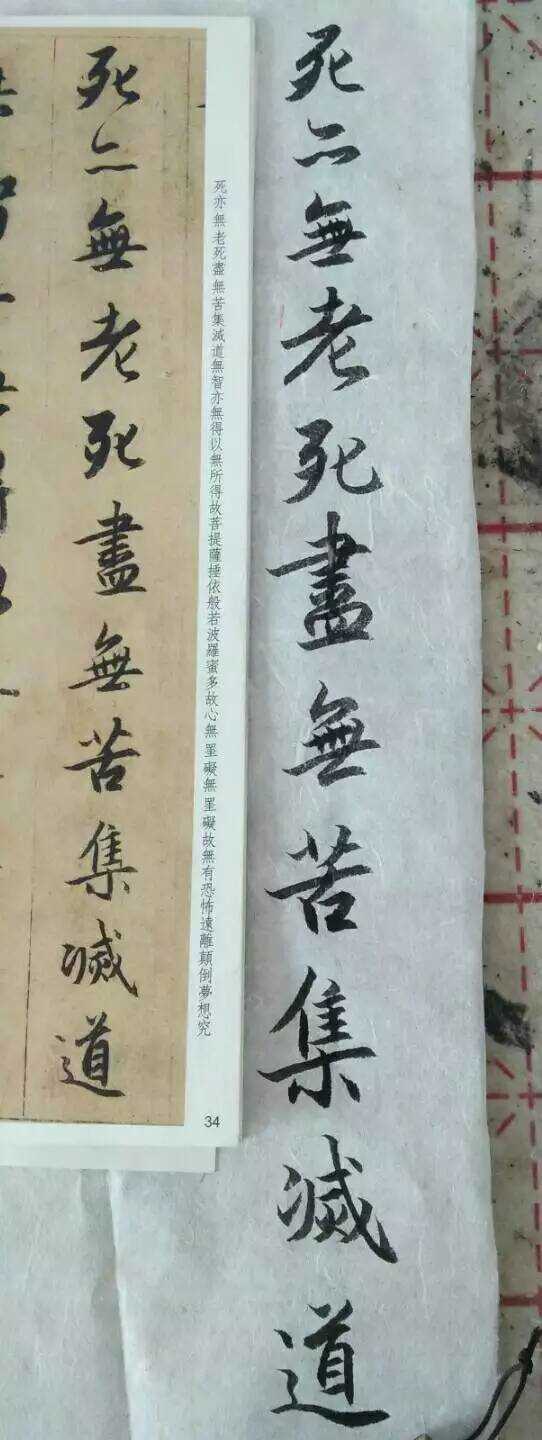 死亦無老死盡無苦集滅道
死亦無老死盡無苦集滅道無智亦無得以無所得故菩提薩埵依般若波羅蜜多故心無罣礙無罣礙故無有恐怖遠離顛倒夢想究
34
死亦無老死盡無苦集滅道